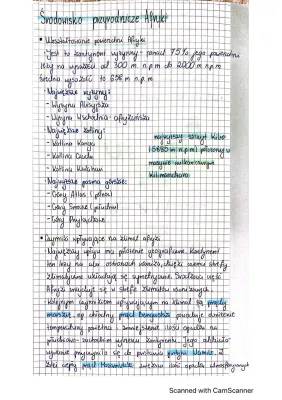 Środowisko przyrodnicze Afryki
• Ukształtowanie powierzchni Afryki
Jest to kontynent wyżynny - ponad 75% jego powierzchni
leży na wysokości od 300 m n.p.m do 2000 m n.p.m
średnia wysokość to 658 m n.p.m
Największe wyżyny:
- Wyżyna Abisyńska
- Wyżyna Wschodnio-afrykańska
Największe kotliny:
- Kotlina Konga
- Kotlina Czadu
- Kotlina Kalahari
najwyższy szczyt Kibo
(5895 m n.p.m) położony w
masywie wulkanicznym
Kilimandżaro
Największe pasma górskie:
- Góry Atlas (północ)
- Góry Smocze (południe)
- Góry Przylądkowe
• Czynniki wpływające na klimat Afryki
Największy wpływ ma położenie geograficzne. Kontynent
ten leży na obu półkulach
klimatyczne układają się symetrycznie. Środkowa część
Afryki znajduje się w strefie klimatów równikowych.
Kolejnym czynnikiem wpływającym na klimat są prądy
morskie, np. chłodny prąd Benguelski powoduje obniżenie
temperatury powietrza i zmniejszenie ilości opadów na
południowo-zachodnim wybrzeżu kontynentu. Jego oddziały-
wanie przyczyniło się do powstania pustyni Namib. Z
kolei ciepły prąd Mozambicki zwiększa ilość opadów atmosferycznych
Scanned with CamScanner